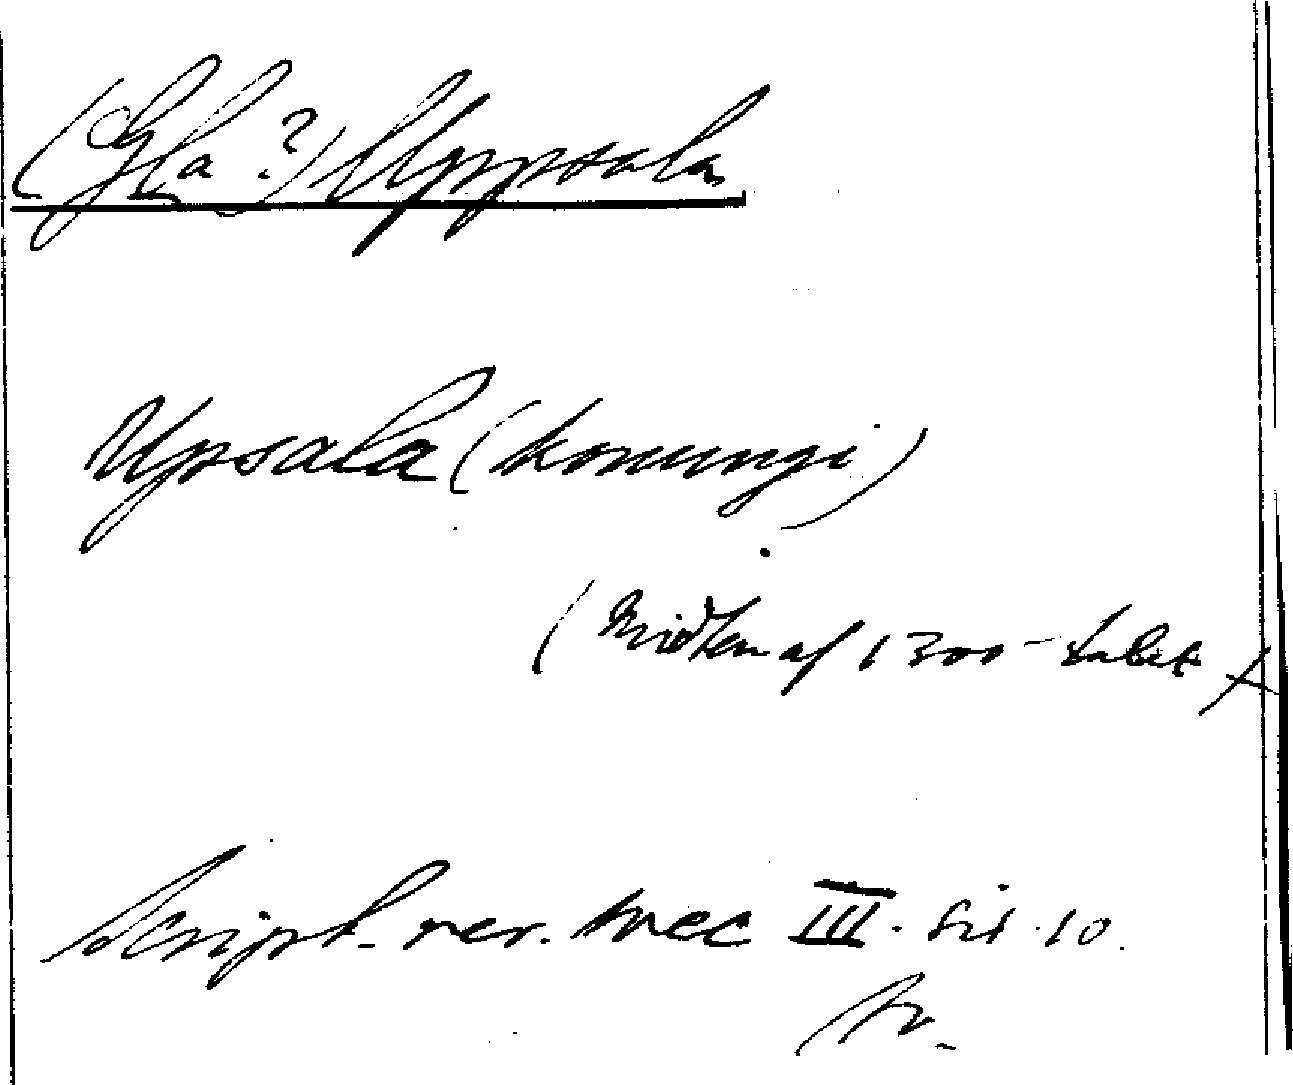 (Gla?) Uppsala
Upsala (konungi)
(Midten af 1300-talet)
Script. rer. svec III. sid. 10.